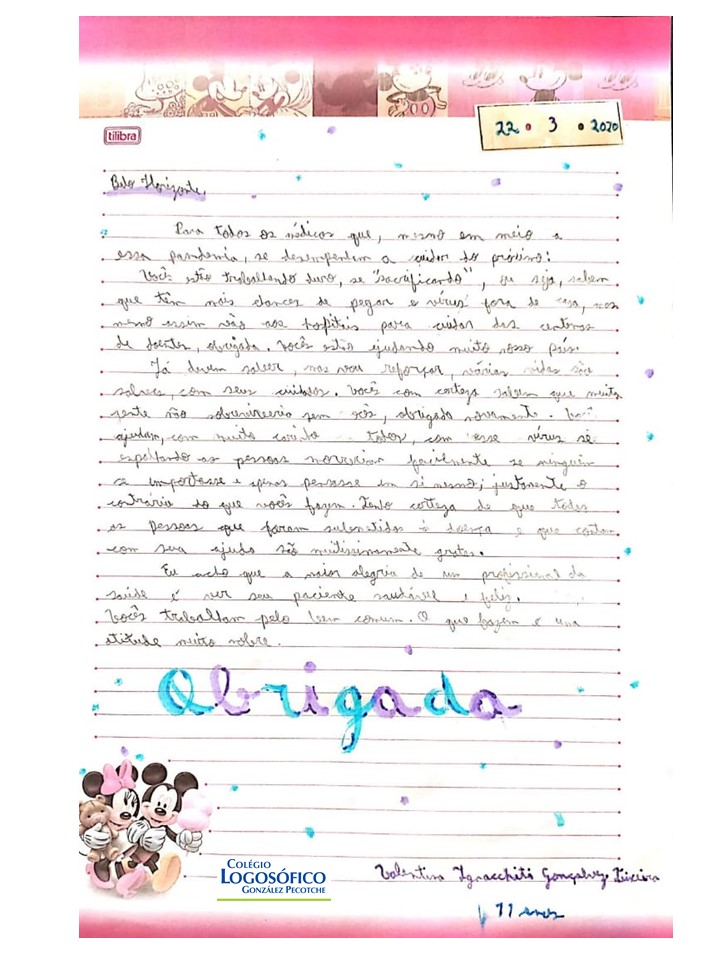 tilibra
22 • 3 • 2020
Belo Horizonte,
Para todos os médicos que, mesmo em meio a
essa pandemia, se desempenham a cuidar do próximo:
Vocês estão trabalhando duro, se "sacrificando", ou seja, sabem
que têm mais chances de pegar o vírus fora de casa, mas
mesmo assim vão aos hospitais para cuidar das centenas
de doentes, obrigada. Vocês estão ajudando muito nosso país.
Já devem saber, mas vou reforçar, várias vidas são
salvas, com seus cuidados. Vocês com certeza sabem que muita
gente não sobreviveria sem vocês, obrigada novamente.
ajudam, com muito carinho todos, com esse vírus se
espalhando as pessoas morreriam facilmente se ninguém
se importasse e apenas pensasse em si mesmo; justamente o
contrário do que vocês fazem. Tenho certeza de que todas
as pessoas que foram submetidas à doença e que contam
com sua ajuda são muitissimamente gratas.
Eu acho que a maior alegria de um profissional da
saúde é ver seu paciente saudável e feliz.
Vocês trabalham pelo bem comum. O que fazem é uma
atitude muito nobre.
Obrigada
COLÉGIO
LOGOSÓFICO
GONZÁLEZ PECOTCHE
Valentina Gonçalves Teixeira
11 anos